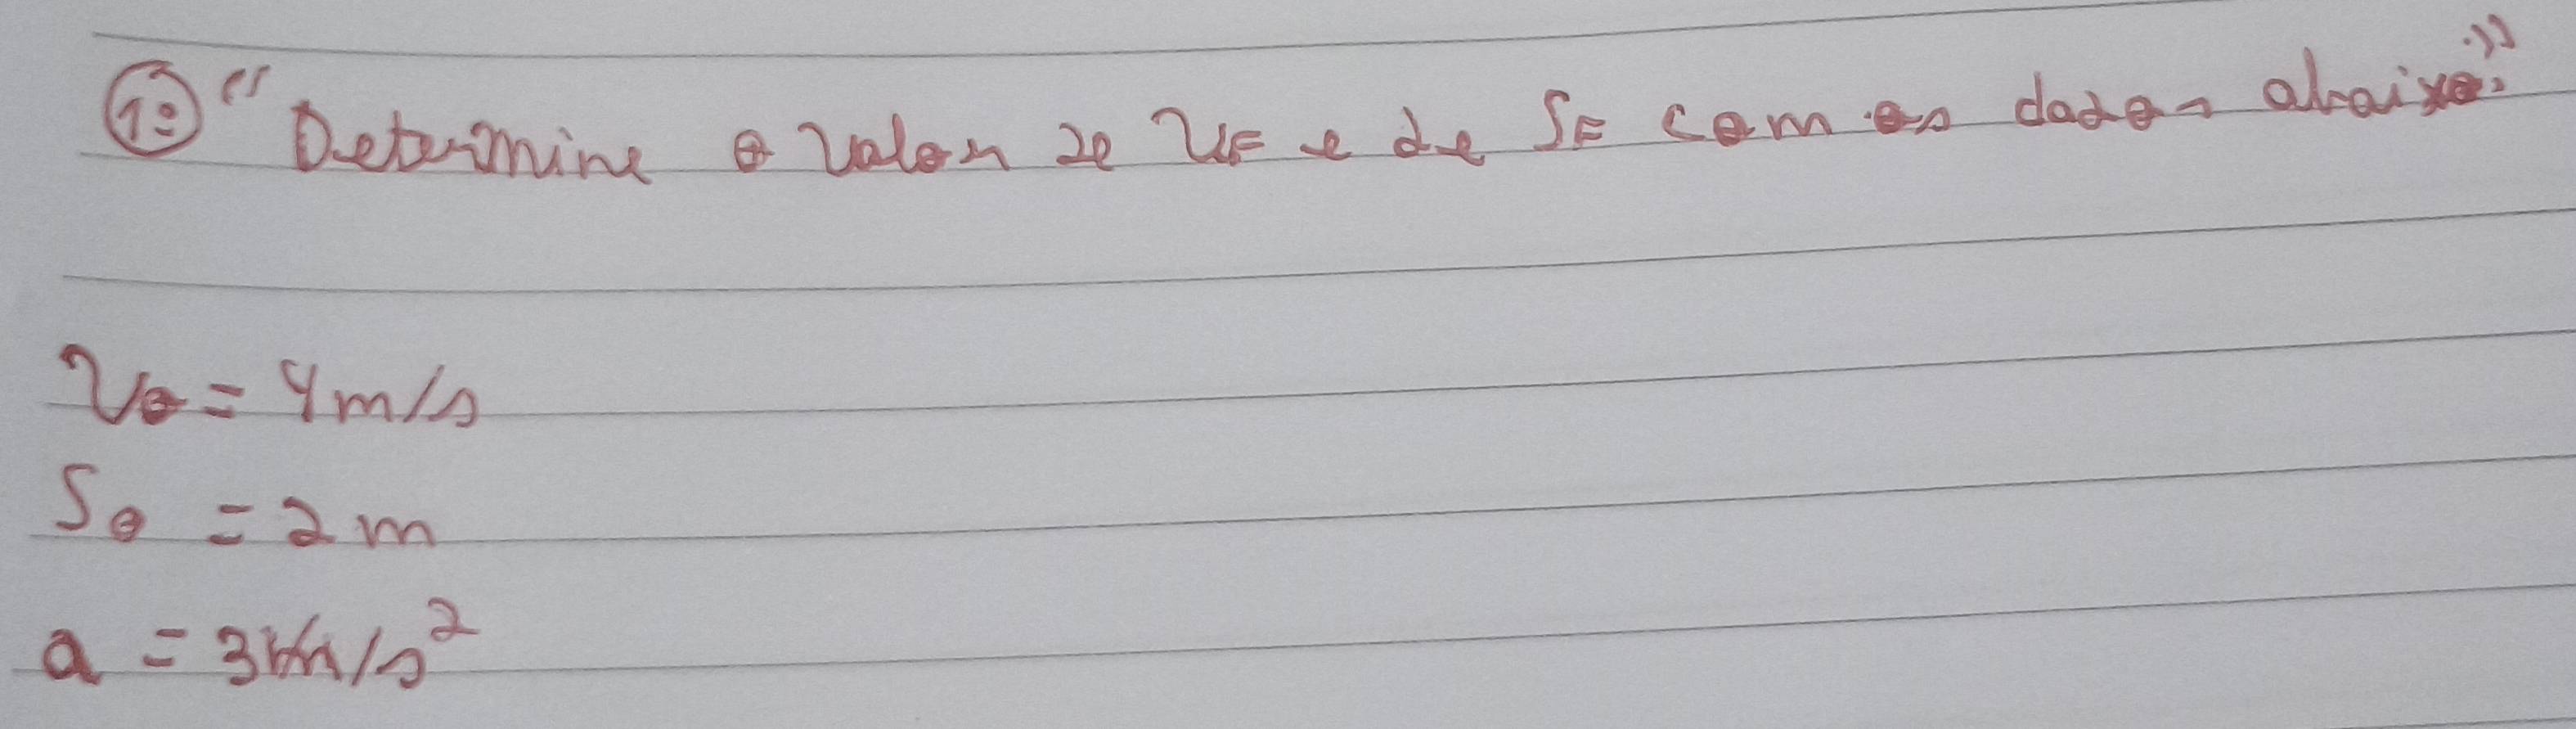 1: "Determine o valor de VF e de SF com os dados abaixo."
Vo = 4m/s
So = 2m
a = 3m/s²